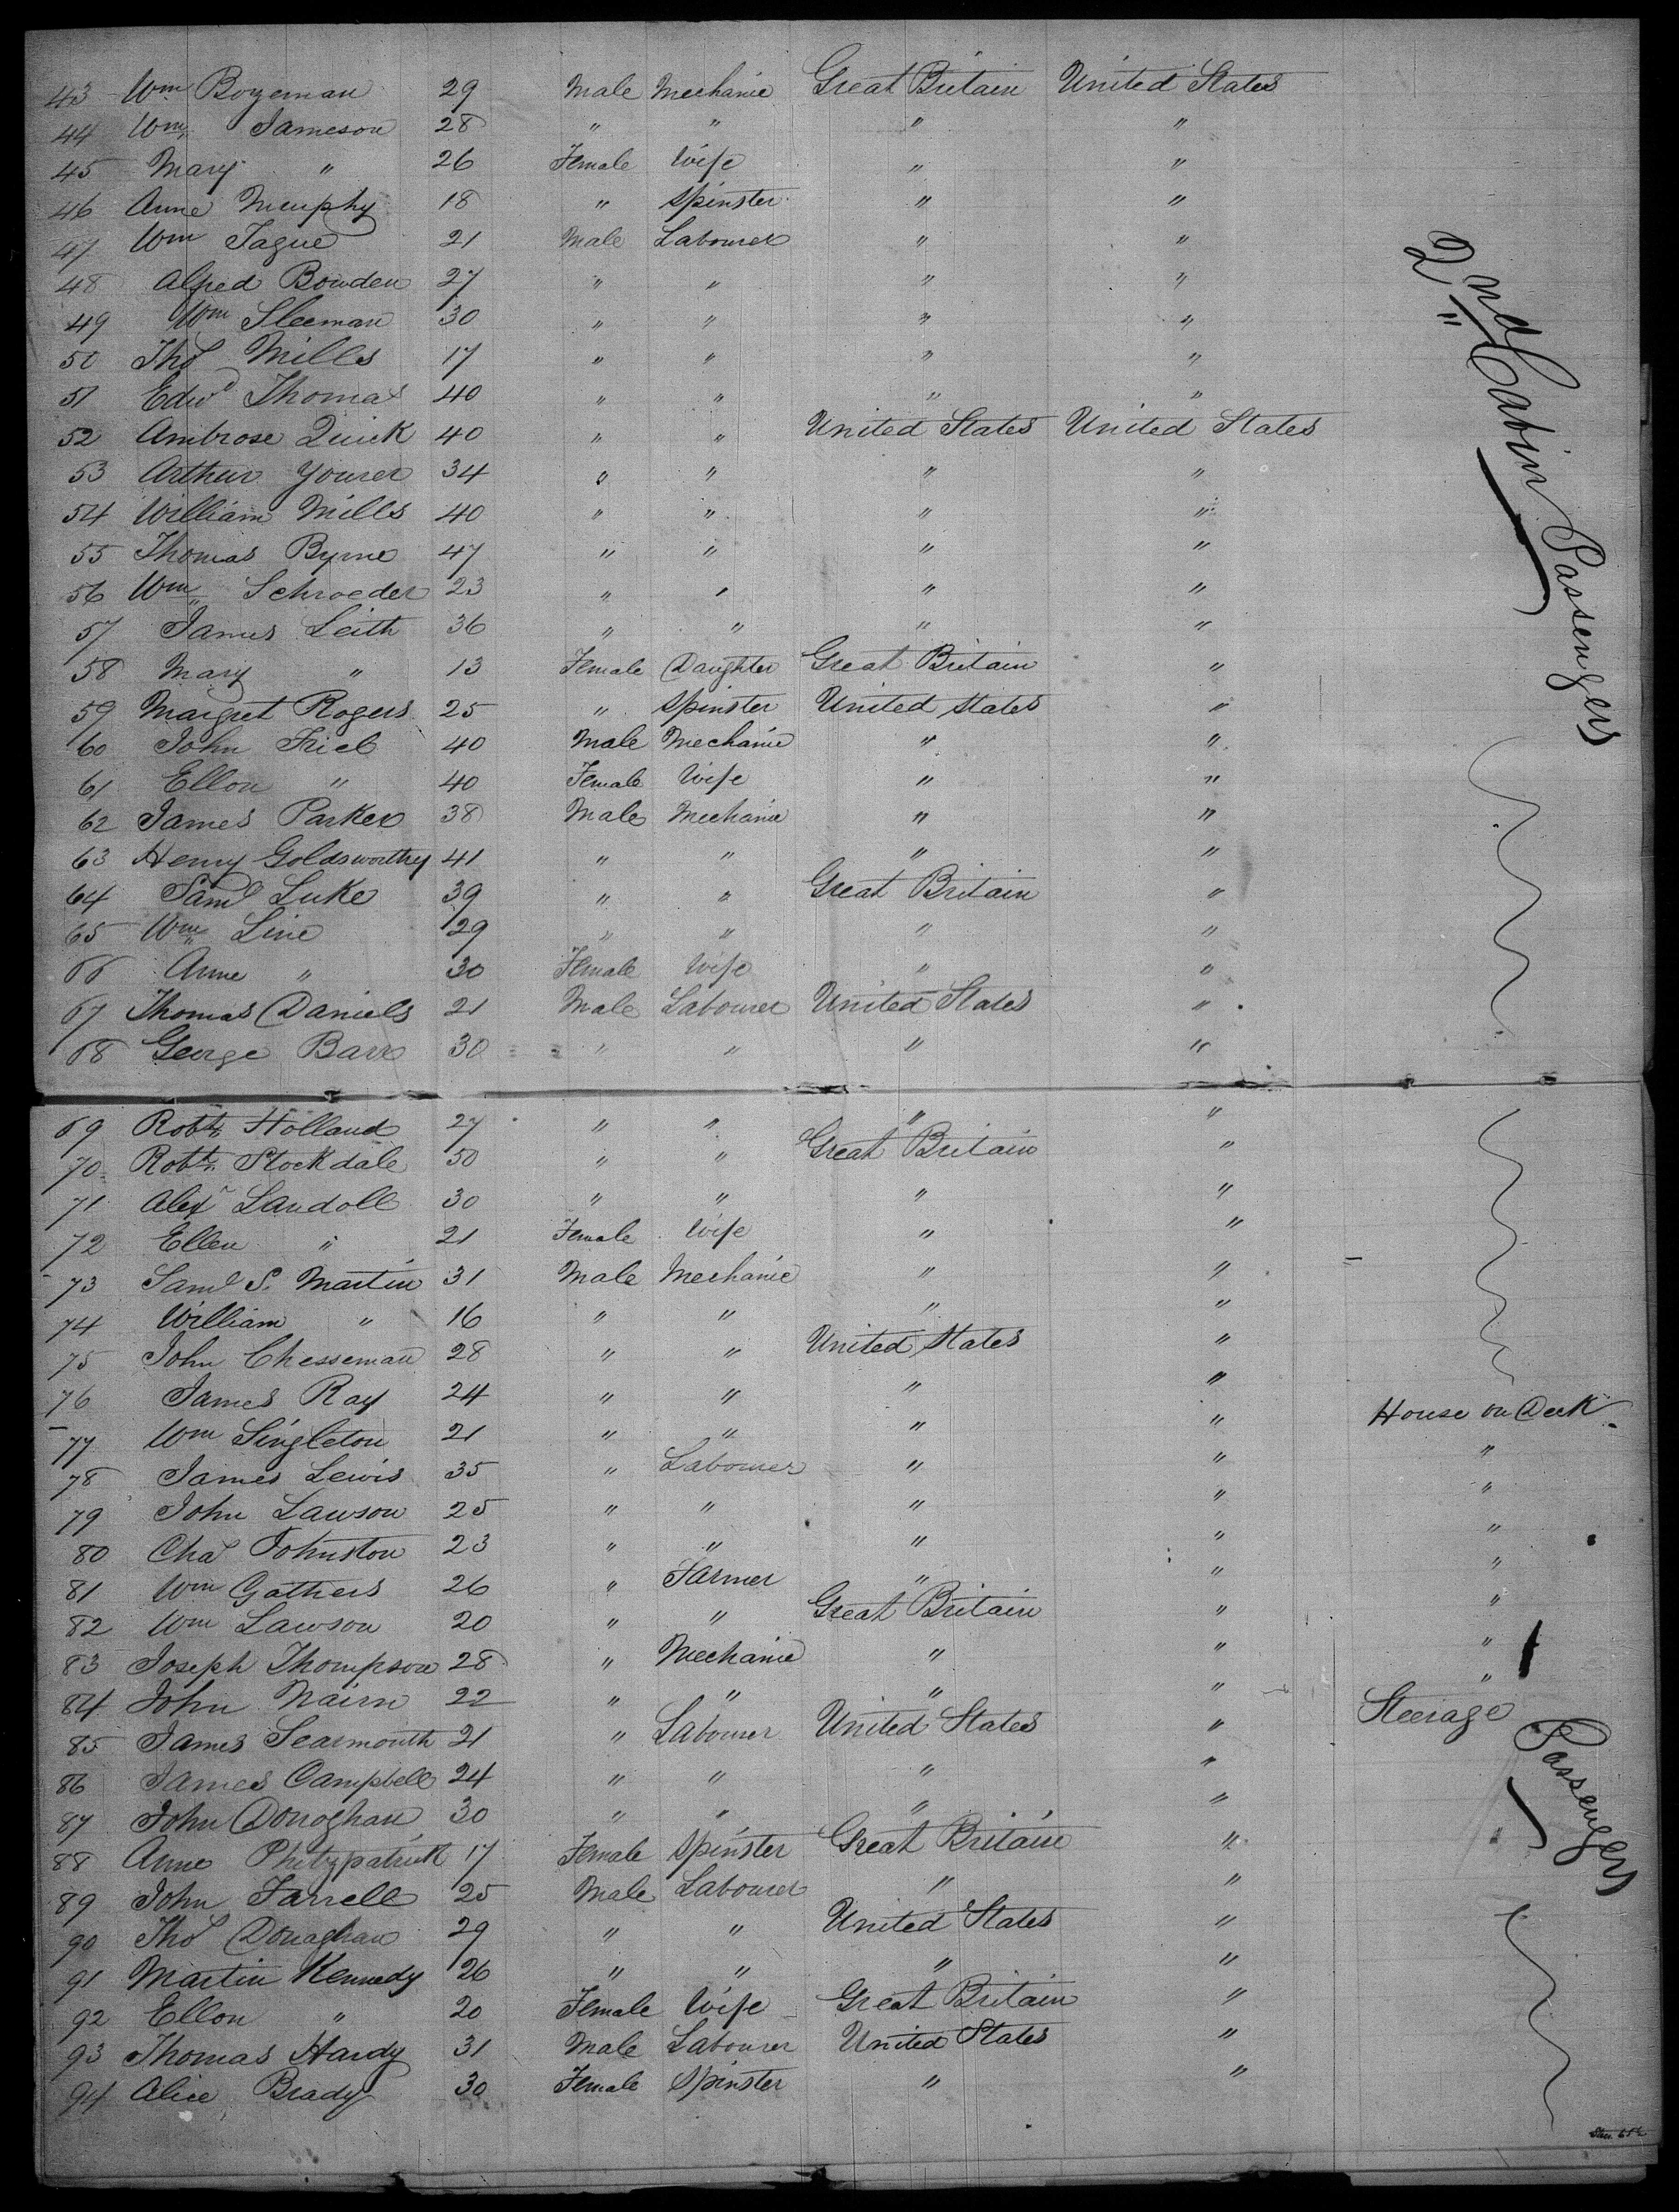 43 Wm Bozeman 29 Male Mechanic Great Britain United States
44 Wm Jameson 28 " " " "
45 Mary " 26 Female Wife " "
46 Anne Murphy 18 " Spinster " "
47 Wm Tague 21 Male Labourer " "
48 Alfred Bowden 27 " " " "
49 Wm Sleeman 30 " " " "
50 Thos Mills 17 " " " "
51 Edwd Thomas 40 " " " "
52 Ambrose Quick 40 " " United States United States
53 Arthur Yourer 34 " " " "
54 William Mills 40 " " " "
55 Thomas Byrne 47 " " " "
56 Wm Schroeder 23 " " " "
57 James Leith 36 " " " "
58 Mary " 13 Female Daughter Great Britain "
59 Margret Rogers 25 " Spinster United States "
60 John Friel 40 Male Mechanic " "
61 Ellen " 40 Female Wife " "
62 James Parker 38 Male Mechanic " "
63 Henry Goldsworthy 41 " " " "
64 Saml Luke 39 " " Great Britain "
65 Wm Line 29 " " " "
66 Anne " 30 Female Wife " "
67 Thomas Daniels 21 Male Labourer United States "
68 George Barr 30 " " " "
2nd Cabin Passengers
69 Robt Holland 27 " " " "
70 Robt Stockdale 50 " " Great Britain "
71 Alexr Landoll 30 " " " "
72 Ellen " 21 Female Wife " "
73 Saml S. Martin 31 Male Mechanic " "
74 William " 16 " " " "
75 John Chesseman 28 " " United States "
76 James Ray 24 " " " " House on Deck
77 Wm Singleton 21 " " " " "
78 James Lewis 35 " Labourer " " "
79 John Lawson 25 " " " " "
80 Chas Johnston 23 " " " " "
81 Wm Gathers 26 " Farmer " " "
82 Wm Lawson 20 " " Great Britain " "
83 Joseph Thompson 28 " Mechanic " " "
84 John Nairn 22 " " " " Steerage Passengers
85 James Searmouth 21 " Labourer United States "
86 James Campbell 24 " " " "
87 John Donoghan 30 " " " "
88 Anne Phitzpatrick 17 Female Spinster Great Britain "
89 John Farrell 25 Male Labourer " "
90 Thos Donaghan 29 " " United States "
91 Martin Kennedy 26 " " " "
92 Ellen " 20 Female Wife Great Britain "
93 Thomas Hardy 31 Male Labourer United States "
94 Alice Brady 30 Female Spinster " "